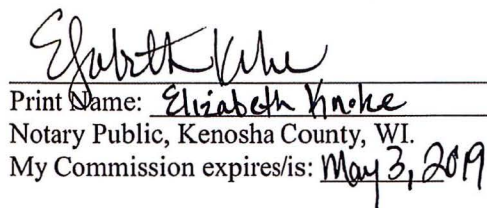 Elizabeth Knoke
Print Name: Elizabeth Knoke
Notary Public, Kenosha County, WI.
My Commission expires/is: May 3, 2019